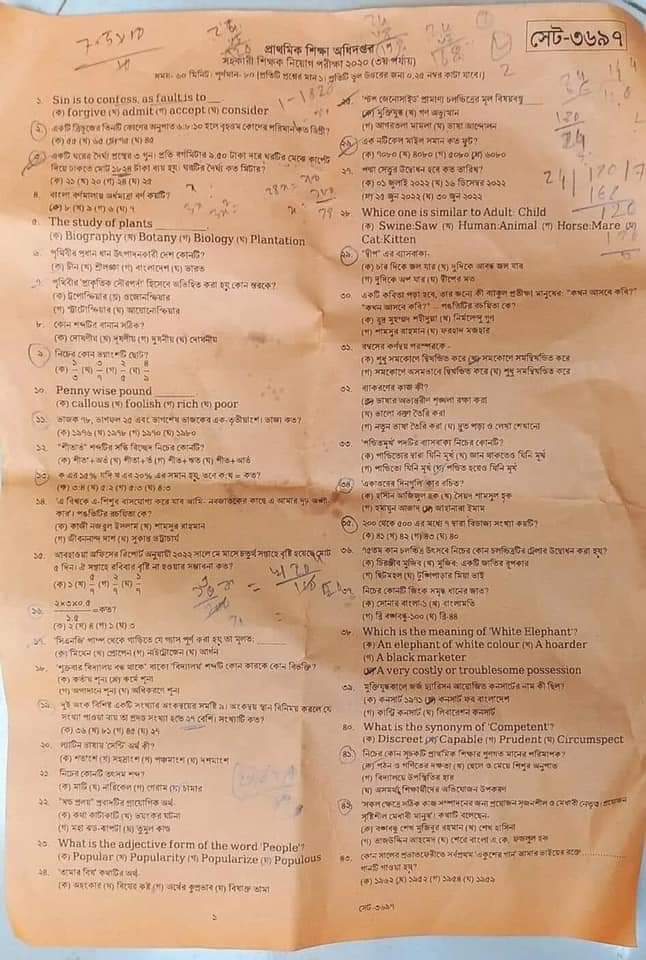 সেট-৩৬৯৭
প্রাথমিক শিক্ষা অধিদপ্তর
সহকারী শিক্ষক নিয়োগ পরীক্ষা ২০২০ (৩য় পর্যায়)
সময়- ৬০ মিনিট। পূর্ণমান- ৮০ (প্রতিটি প্রশ্নের মান ১। প্রতিটি ভুল উত্তরের জন্য ০.২৫ নম্বর কাটা যাবে।)
১. Sin is to confess, as fault is to __
(ক) forgive (খ) admit (গ) accept (ঘ) consider
২. একটি ত্রিভুজের তিনটি কোণের অনুপাত ৬:৮:১০ হলে বৃহত্তম কোণের পরিমান কত ডিগ্রী?
৩. একটি ঘরের দৈর্ঘ্য প্রস্থের ৩ গুন। প্রতি বর্গমিটার ৯.৫০ টাকা দরে ঘরটির মেঝে কার্পেট
দিয়ে ঢাকতে মোট ১৮২৪ টাকা ব্যয় হয়। ঘরটির দৈর্ঘ্য কত মিটার?
(ক) ২১ (খ) ২০ (গ) ২৪ (ঘ) ২৫
৪. বাংলা বর্ণমালায় অর্ধমাত্রা বর্ণ কয়টি?
(ক) ৮ (খ) ৯ (গ) ৬ (ঘ) ৭
৫. The study of plants ______
(ক) Biography (খ) Botany (গ) Biology (ঘ) Plantation
৬. পৃথিবীর প্রধান ধান উৎপাদনকারী দেশ কোনটি?
(ক) চীন (খ) শ্রীলঙ্কা (গ) বাংলাদেশ (ঘ) ভারত
৭. পৃথিবীর 'প্রাকৃতিক সৌরপর্দা' হিসেবে অভিহিত করা হয় কোন স্তরকে?
(ক) ট্রপোস্ফিয়ার (খ) ওজোনস্ফিয়ার
(গ) স্ট্রাটোস্ফিয়ার (ঘ) আয়োনোস্ফিয়ার
৮. কোন শব্দটির বানান সঠিক?
৯. নিচের কোন ভগ্নাংশটি ছোট?
১০. Penny wise pound ______
(ক) callous (খ) foolish (গ) rich (ঘ) poor
১১. ভাজক ৭৮, ভাগফল ২৫ এবং ভাগশেষ ভাজকের এক-তৃতীয়াংশ। ভাজ্য কত?
(ক) ১৯৭৬ (খ) ১৯৭৮ (গ) ১৯৭০ (ঘ) ১৯৮০
১২. 'শীতার্ত' শব্দটির সন্ধি বিচ্ছেদ নিচের কোনটি?
(ক) শীতা+অর্ত (খ) শীতা+র্ত (গ) শীত+ঋত (ঘ) শীত+আর্ত
১৩. ক এর ১৫% যদি খ এর ২০% এর সমান হয়, তবে ক:খ = কত?
(ক) ৩:৪ (খ) ৫:২ (গ) ৫:৩ (ঘ) ৪:৩
১৪. 'এ বিশ্বকে এ-শিশুর বাসযোগ্য করে যাব আমি- নবজাতকের কাছে এ আমার দৃঢ় অঙ্গীকার।' পঙক্তিটির রচয়িতা কে?
(ক) কাজী নজরুল ইসলাম (খ) শামসুর রাহমান
(গ) জীবনানন্দ দাশ (ঘ) সুকান্ত ভট্টাচার্য
১৫. আবহাওয়া অফিসের রিপোর্ট অনুযায়ী ২০২২ সালে মে মাসে চতুর্থ সপ্তাহে বৃষ্টি হয়েছে মোট
৫ দিন। ঐ সপ্তাহে রবিবার বৃষ্টি না হওয়ার সম্ভাবনা কত?
১৬. ২×৩×০.৫ / ১.৫ = কত?
(ক) ২ (খ) ৪ (গ) ১ (ঘ) ৩
১৭. 'সিএনজি' পাম্প থেকে গাড়িতে যে গ্যাস পূর্ণ করা হয় তা মূলত:
(ক) মিথেন (খ) প্রোপেন (গ) নাইট্রোজেন (ঘ) আর্গন
১৮. 'শুক্রবার বিদ্যালয় বন্ধ থাকে' বাক্যে 'বিদ্যালয়' শব্দটি কোন কারকে কোন বিভক্তি?
(ক) কর্তায় শূন্য (খ) কর্মে শূন্য
(গ) অপাদানে শূন্য (ঘ) অধিকরণে শূন্য
১৯. দুই অংক বিশিষ্ট একটি সংখ্যার অংকদ্বয়ের সমষ্টি ৯। অংকদ্বয় স্থান বিনিময় করলে যে
সংখ্যা পাওয়া যায় তা প্রদত্ত সংখ্যা হতে ২৭ বেশি। সংখ্যাটি কত?
(ক) ৩৬ (খ) ৮১ (গ) ৪৫ (ঘ) ২৭
২০. ল্যাটিন ভাষায় 'সেন্টি' অর্থ কী?
(ক) শতাংশ (খ) সহস্রাংশ (গ) পঞ্চমাংশ (ঘ) দশমাংশ
২১. নিচের কোনটি তৎসম শব্দ?
(ক) মাটি (খ) নারিকেল (গ) গেরাম (ঘ) চামার
২২. প্রবাদটির প্রায়োগিক অর্থ-
(ক) কথা কাটাকাটি (খ) ভয়ংকর ঘটনা
(গ) মহা ঝড়-ঝাপটা (ঘ) তুমুল কাণ্ড
২৩. What is the adjective form of the word 'People'?
(ক) Popular (খ) Popularity (গ) Popularize (ঘ) Populous
২৪. 'তামার বিষ' কথাটির অর্থ-
(ক) অহংকার (খ) বিষের কষ্ট (গ) অর্থের কুপ্রভাব (ঘ) বিষাক্ত তামা
১
২৫. 'স্টপ জেনোসাইড' প্রামাণ্য চলচ্চিত্রের মূল বিষয়বস্তু
(ক) মুক্তিযুদ্ধ (খ) গণ অভ্যুত্থান
(গ) আগরতলা মামলা (ঘ) ভাষা আন্দোলন
২৬. এক নটিকেল মাইল সমান কত ফুট?
(ক) ৭০৮০ (খ) ৪০৮০ (গ) ৫০৮০ (ঘ) ৬০৮০
২৭. পদ্মা সেতুর উদ্বোধন হবে কত তারিখ?
(ক) ০১ জুলাই ২০২২ (খ) ১৬ ডিসেম্বর ২০২২
(গ) ২৫ জুন ২০২২ (ঘ) ৩০ জুন ২০২২
২৮. Whice one is similar to Adult: Child
(ক) Swine:Saw (খ) Human:Animal (গ) Horse:Mare (ঘ)
Cat:Kitten
২৯. "দ্বীপ" এর ব্যাসবাক্য-
(ক) চার দিকে জল যার (খ) দুদিকে আবদ্ধ জল যার
(গ) দুদিকে অপ যার (ঘ) দ্বীপের মত
৩০. একটি কবিতা পড়া হবে, তার জন্যে কী ব্যাকুল প্রতীক্ষা মানুষের: "কখন আসবে কবি?"
"কখন আসবে কবি?" ... পঙক্তিটির রচয়িতা কে?
(ক) রুদ্র মুহম্মদ শহীদুল্লা (খ) নির্মলেন্দু গুণ
(গ) শামসুর রাহমান (ঘ) ফরহাদ মজহার
৩১. রম্বসের কর্ণদ্বয় পরস্পরকে -
(ক) শুধু সমকোণে দ্বিখন্ডিত করে (খ) সমকোণে সমদ্বিখন্ডিত করে
(গ) সমকোণে অসমভাবে দ্বিখন্ডিত করে (ঘ) শুধু সমদ্বিখন্ডিত করে
৩২. ব্যাকরণের কাজ কী?
(ক) ভাষার অভ্যন্তরীণ শৃঙ্খলা রক্ষা করা
(খ) ভালো বক্তা তৈরি করা
(গ) নতুন ভাষা তৈরি করা (ঘ) দ্রুত পড়া ও লেখা শেখানো
৩৩. 'পন্ডিতমূর্খ' পদটির ব্যাসবাক্য নিচের কোনটি?
(ক) পান্ডিত্যের দ্বারা যিনি মূর্খ (খ) জ্ঞান থাকতেও যিনি মূর্খ
(গ) পান্ডিত্যে যিনি মূর্খ (ঘ) পন্ডিত হয়েও যিনি মূর্খ
৩৪. 'একাত্তরের দিনগুলি' কার রচিত?
(ক) হাসান আজিজুল হক (খ) সৈয়দ শামসুল হক
(গ) হুমায়ুন আজাদ (ঘ) জাহানারা ইমাম
৩৫. ২০০ থেকে ৫০০ এর মধ্যে ৭ দ্বারা বিভাজ্য সংখ্যা কয়টি?
(ক) ৪১ (খ) ৪২ (গ) ৪৩ (ঘ) ৪০
৩৬. ৭৫তম কান চলচ্চিত্র উৎসবে নিচের কোন চলচ্চিত্রটির ট্রেলার উদ্বোধন করা হয়?
(ক) চিরঞ্জীব মুজিব (খ) মুজিব: একটি জাতির রূপকার
(গ) ছিটমহল (ঘ) টুঙ্গিপাড়ার মিয়া ভাই
৩৭. নিচের কোনটি জিংক সমৃদ্ধ ধানের জাত?
(ক) সোনার বাংলা-১ (খ) বাংলামতি
(গ) ব্রি বঙ্গবন্ধু-১০০ (ঘ) ব্রি-৪৪
৩৮. Which is the meaning of 'White Elephant'?
(ক) An elephant of white colour (খ) A hoarder
(গ) A black marketer
(ঘ) A very costly or troublesome possession
৩৯. মুক্তিযুদ্ধকালে জর্জ হ্যারিসন আয়োজিত কনসার্টের নাম কী ছিল?
(ক) কনসার্ট ১৯৭১ (খ) কনসার্ট ফর বাংলাদেশ
(গ) কান্ট্রি কনসার্ট (ঘ) লিবারেশন কনসার্ট
৪০. What is the synonym of 'Competent'?
(ক) Discreet (খ) Capable (গ) Prudent (ঘ) Circumspect
৪১. নিচের কোন সূচকটি প্রাথমিক শিক্ষার গুণগত মানের পরিমাপক?
(ক) পঠন ও গণিতের দক্ষতা (খ) ছেলে ও মেয়ে শিশুর অনুপাত
(গ) বিদ্যালয়ে উপস্থিতির হার
৪২. 'সকল ক্ষেত্রে সঠিক কাজ সম্পাদনের জন্য প্রয়োজন সৃজনশীল ও মেধাবী নেতৃত্ব; প্রয়োজন
সৃষ্টিশীল মেধাবী মানুষ'। কথাটি বলেছেন-
(ক) বঙ্গবন্ধু শেখ মুজিবুর রহমান (খ) শেখ হাসিনা
(গ) তাজউদ্দিন আহমেদ (ঘ) শেরে বাংলা এ. কে. ফজলুল হক
৪৩. কোন সালের প্রভাতফেরীতে সর্বপ্রথম 'একুশের গান' আমার ভাইয়ের রক্তে........
গানটি গাওয়া হয়?
(ক) ১৯৬২ (খ) ১৯৫২ (গ) ১৯৫৪ (ঘ) ১৯৫৯
সেট-৩৬৯৭